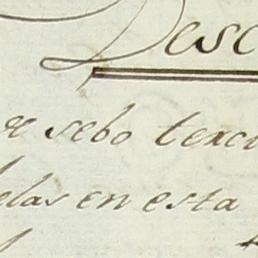 Desc
de sebo terci
elas en esta